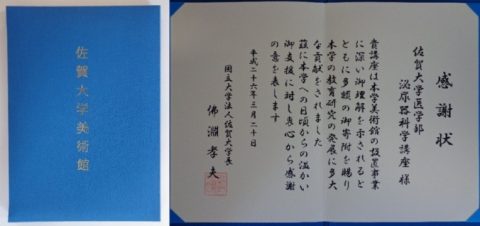 佐賀大学美術館
感謝状
佐賀大学医学部
泌尿器科学講座 様
貴講座は本学美術館の設置事業
に深い御理解を示されると
ともに多額の御寄附を賜り
本学の教育研究の発展に多大
な貢献をされました
茲に本学への日頃からの温かい
御支援に対し衷心から感謝
の意を表します
平成二十六年三月二十日
国立大学法人佐賀大学長
佛淵孝夫